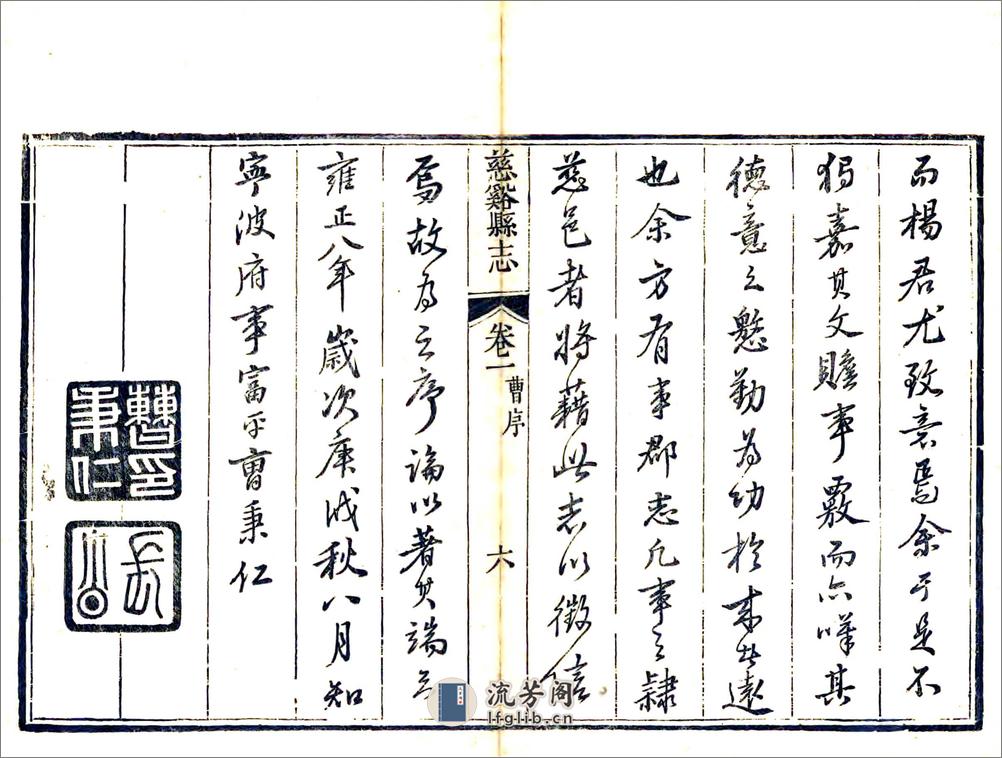 而楊君尤致意焉余于是不
獨嘉其文贍事覈而亦嘆其
德意之懇勤為功於來者遠
也余方有事郡志凡事之隸
慈邑者將藉此志以徵信
慈谿縣志 卷一 曹序 六
焉故為之序論以著其端云
雍正八年歲次庚戌秋八月知
寧波府事富平曹秉仁
曹印秉仁
長公
流芳阁
lfglib.cn